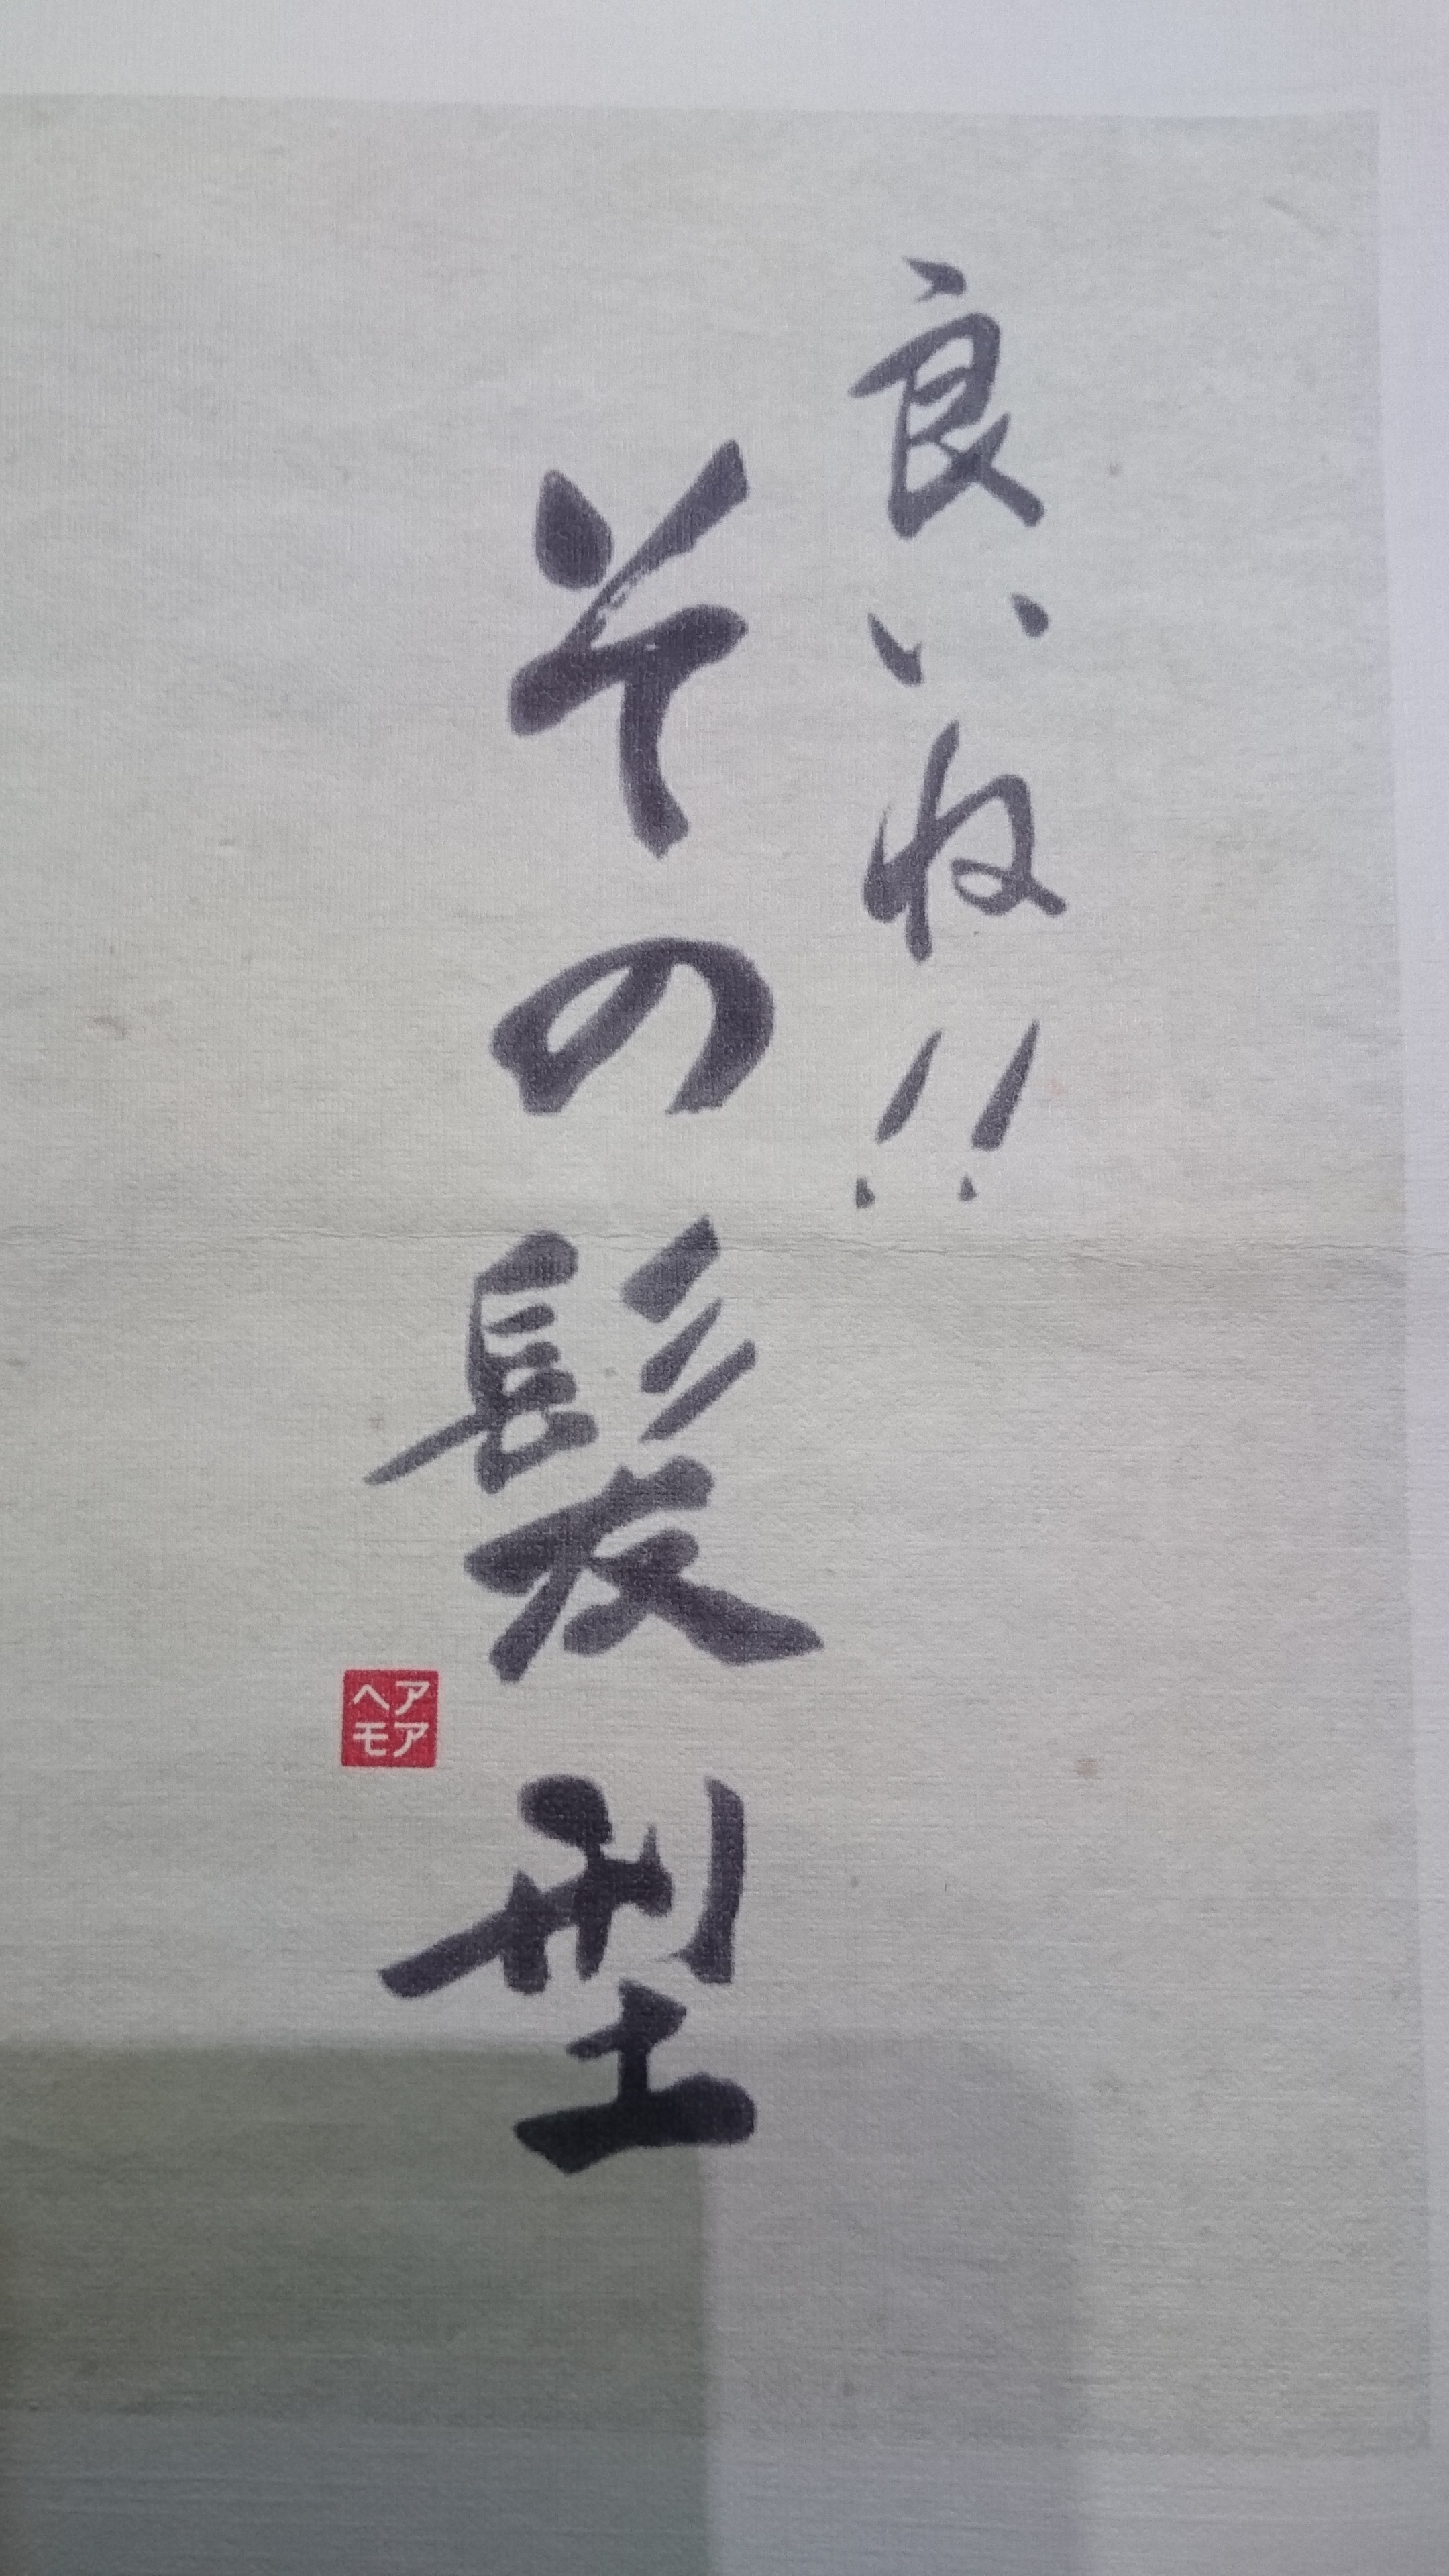 良いね!!
その髪型
ヘアモア